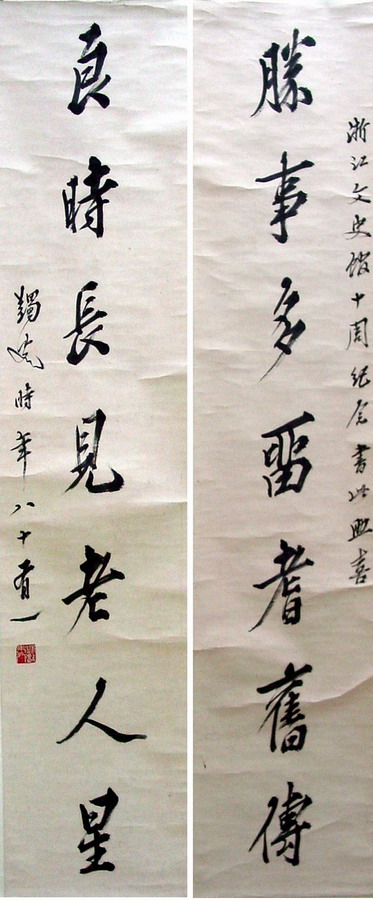 浙江文史館十周紀念書此喜
勝事多留耆舊傳
良時長見老人星
蠲叟時年八十有一